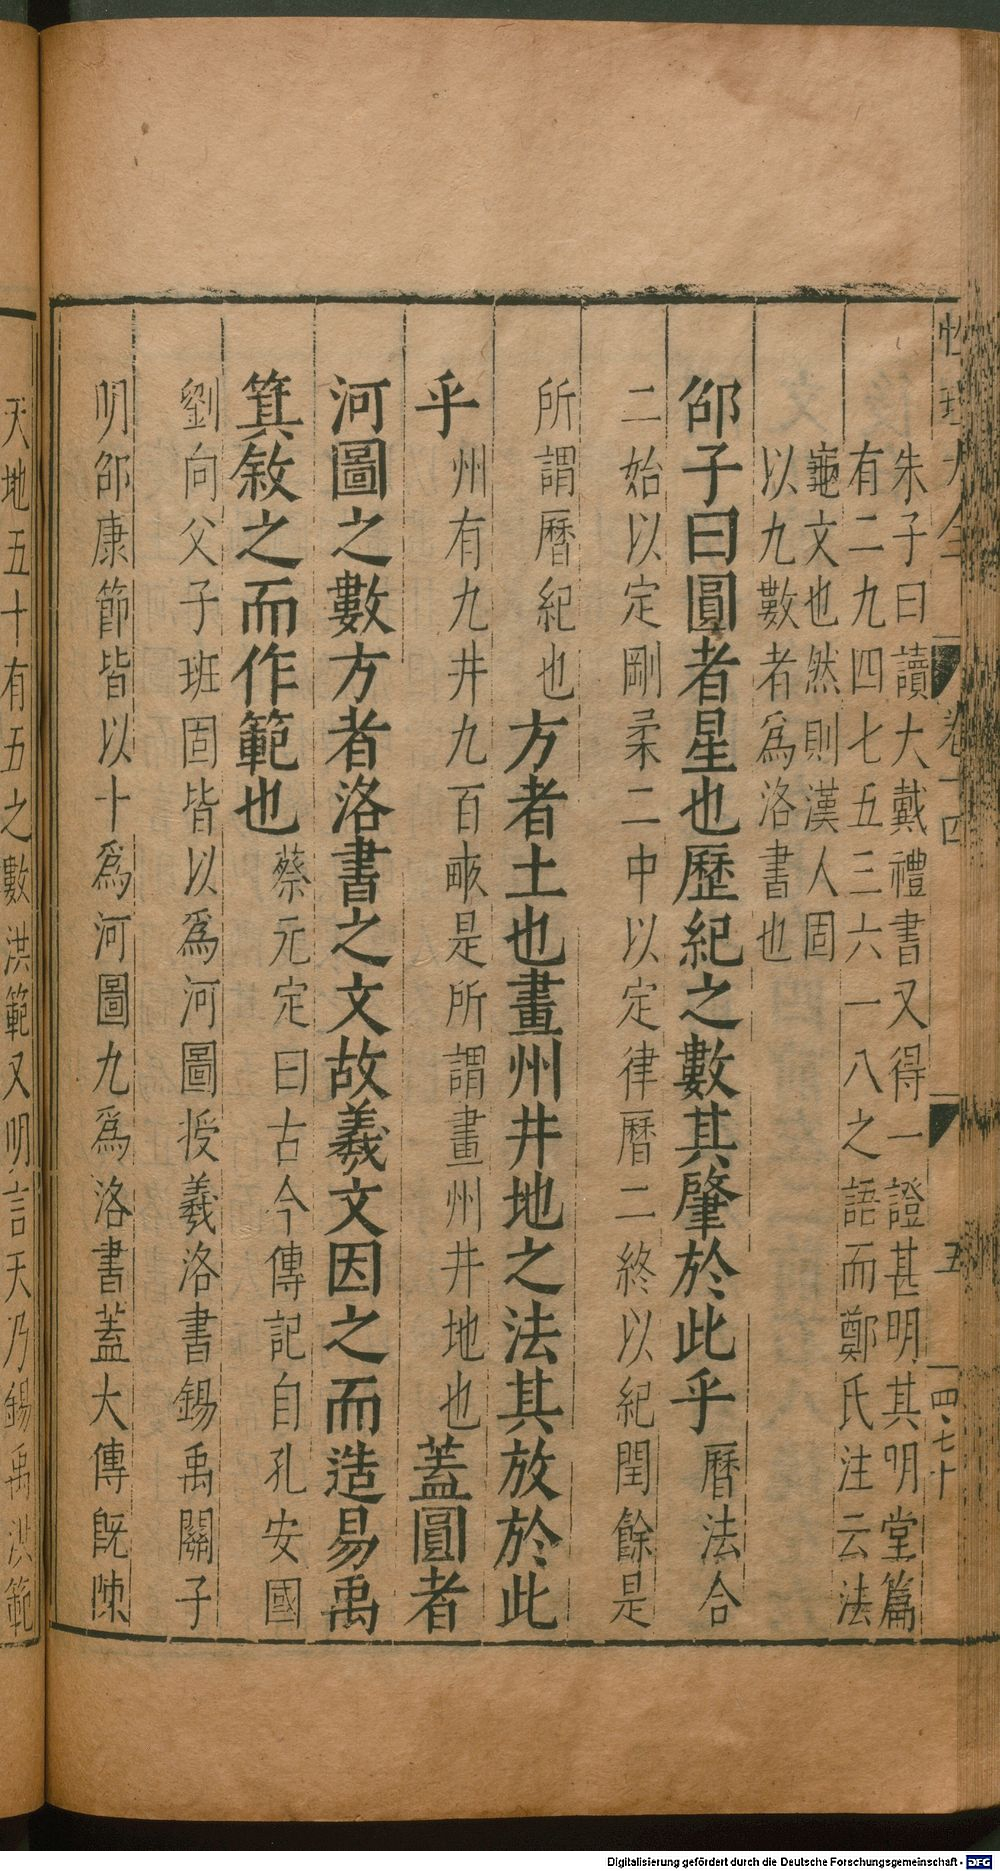 性理大全
卷十四
五
四七十
朱子曰讀大戴禮書又得一證甚明其明堂篇
有二九四七五三六一八之語而鄭氏注云法
龜文也然則漢人固
以九數者爲洛書也
邵子曰圓者星也歷紀之數其肇於此乎曆法合
二始以定剛柔二中以定律曆二終以紀閏餘是
所謂曆紀也方者土也畫州井地之法其放於此
乎州有九井九百畝是所謂畫州井地也蓋圓者
河圖之數方者洛書之文故羲文因之而造易禹
箕敘之而作範也蔡元定曰古今傳記自孔安國
劉向父子班固皆以爲河圖授羲洛書錫禹關子
明邵康節皆以十爲河圖九爲洛書蓋大傳旣陳
天地五十有五之數洪範又明言天乃錫禹洪範
Digitalisierung gefördert durch die Deutsche Forschungsgemeinschaft - DFG